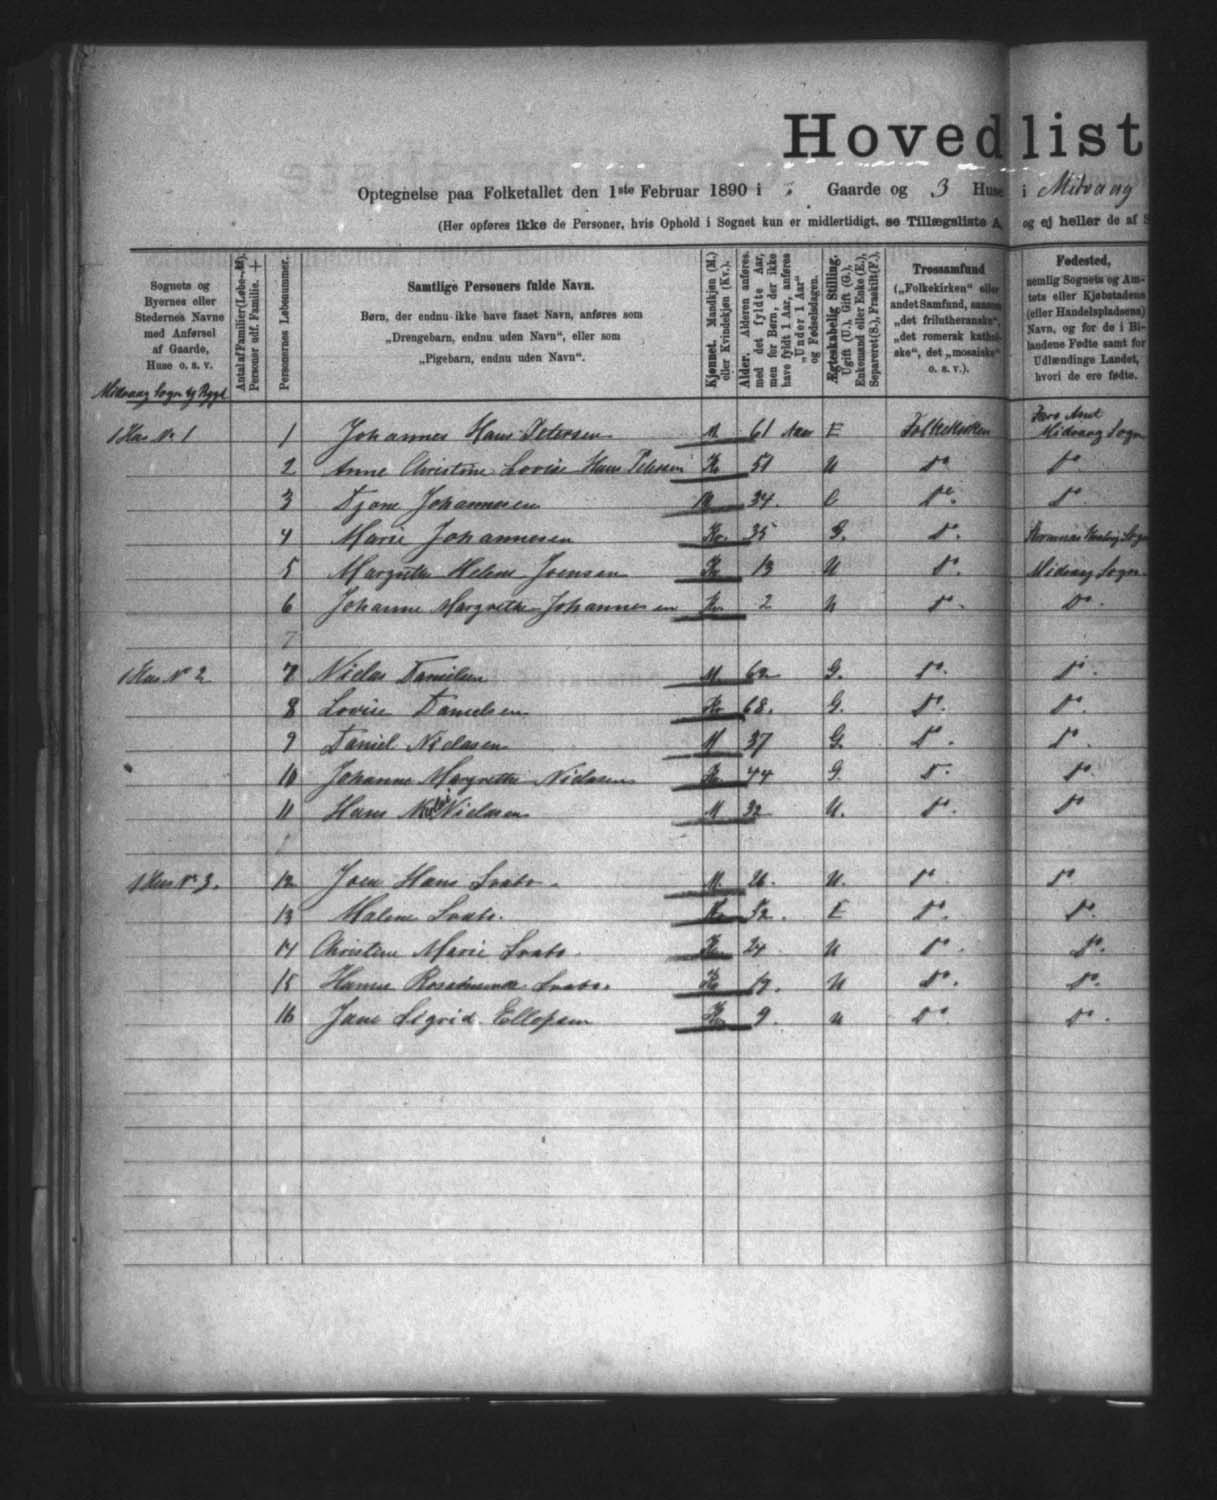 Hovedlist
Optegnelse paa Folketallet den 1ste Februar 1890 i Gaarde og 3 Huse i Midvaag
(Her opføres ikke de Personer, hvis Ophold i Sognet kun er midlertidigt, se Tillægsliste A, og ej heller de af S
Sognets og Byernes eller Stedernes Navne med Anførsel af Gaarde, Huse o. s. v.
Antal af Familier (Løbe-№). Personer udf. Familie. +
Personernes Løbenummer.
Samtlige Personers fulde Navn.
Børn, der endnu ikke have faaet Navn, anføres som
„Drengebarn, endnu uden Navn“, eller som
„Pigebarn, endnu uden Navn“.
Kjønnet. Mandkjøn (M.) eller Kvindekjøn (Kv.).
Alder. Alderen anføres med det fyldte Aar, men for Børn, der ikke have fyldt 1 Aar, anføres „Under 1 Aar“ og Fødselsdagen.
Ægteskabelig Stilling. Ugift (U.), Gift (G.), Enkemand eller Enke (E.), Separeret (S.), Fraskilt (F.).
Trossamfund
(„Folkekirken“ eller andet Samfund, saasom „det frilutheranske“, „det romersk katholske“, det „mosaiske“ o. s. v.).
Fødested,
nemlig Sognets og Amtets eller Kjøbstadens (eller Handelspladsens) Navn, og for de i Bilandene Fødte samt for Udlændinge Landet, hvori de ere fødte.
Midvaag Sogn og Bygd
1 Hus № 1 1 Johannes Hans Petersen M 61 Aar E Folkekirken Færø Amt Midvaag Sogn
2 Anne Christine Lovise Hans Petersen Kv 51 U do do
3 Djone Johannesen M 34. do. do
4 Marie Johannesen Kv. 35 G. do. Sogn
5 Margrethe Helene Joensen Kv 13 U do. Midvaag Sogn
6 Johanne Margrethe Johannesen Kv 2 U do. do.
7
1 Hus № 2 7 Niclas Danielsen M 62 G. do. do.
8 Lovise Danielsen Kv 68. G. do. do.
9 Daniel Niclasen M 37 G. do. do.
10 Johanne Margrethe Niclasen Kv. 44 G. do. do.
11 Hans Niclasen M 32 U. do. do
1 Hus № 3. 12 Joen Hans Svabo. M. 26. U. do do
13 Malene Svabo. Kv 52. E do. do.
14 Christine Marie Svabo. Kv 24 U do. do.
15 Hanne Rosamunda Svabo. Kv 19. U do. do.
16 Jane Sigrid Ellefsen Kv 9. U do. do.